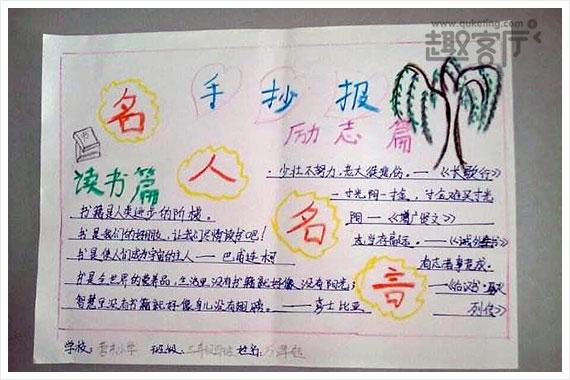 www.quketing.com
趣客厅
手抄报
名人名言
励志篇
读书篇
·少壮不努力,老大徒悲伤。—《长歌行》
一寸光阴一寸金,寸金难买寸光
阴—《增广贤文》
志当存高远。—《诫外甥书》
有志者事竟成。
—《后汉书·
列传》
书籍是人类进步的阶梯。
书是我们的好朋友,让我们尽情读书吧!
书是使人们成为宇宙的主人——巴甫连柯
书是全世界的营养品,生活里没有书籍就好像没有阳光;
智慧里没有书籍就好像鸟儿没有翅膀。——莎士比亚
学校: 小学 班级: 三年级 姓名: